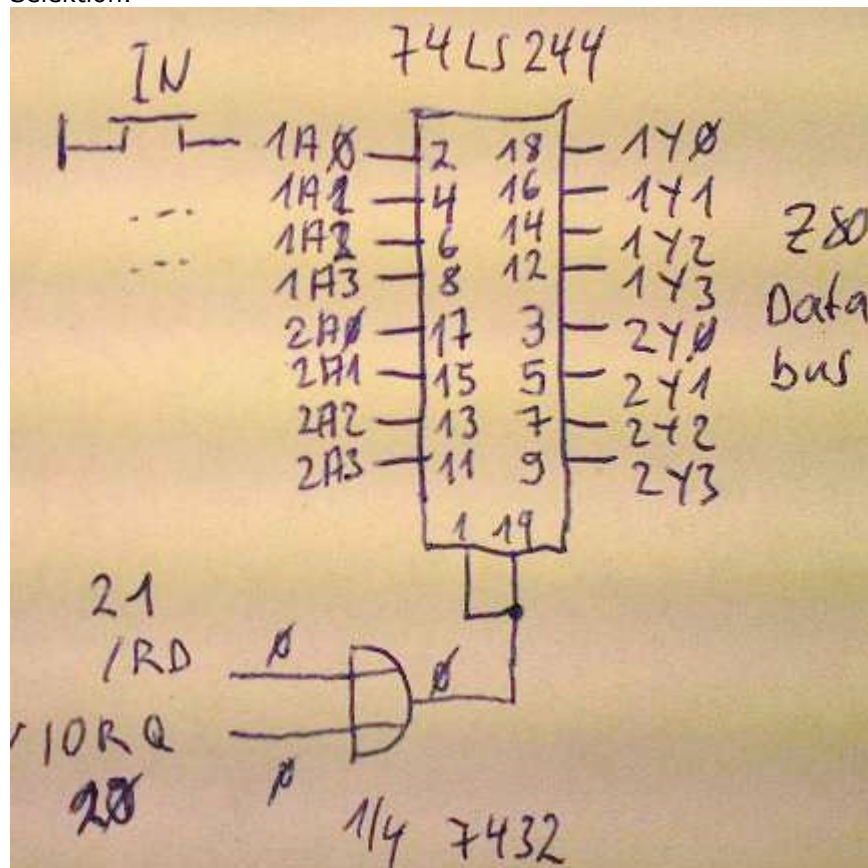 Selektion.
74LS244
IN
1A0 2 18 1Y0
1A1 4 16 1Y1
1A2 6 14 1Y2
1A3 8 12 1Y3
2A0 17 3 2Y0
2A1 15 5 2Y1
2A2 13 7 2Y2
2A3 11 9 2Y3
Z80
Data
bus
1 19
21
/RD 0
0
/IORQ
0
20
1/4 7432